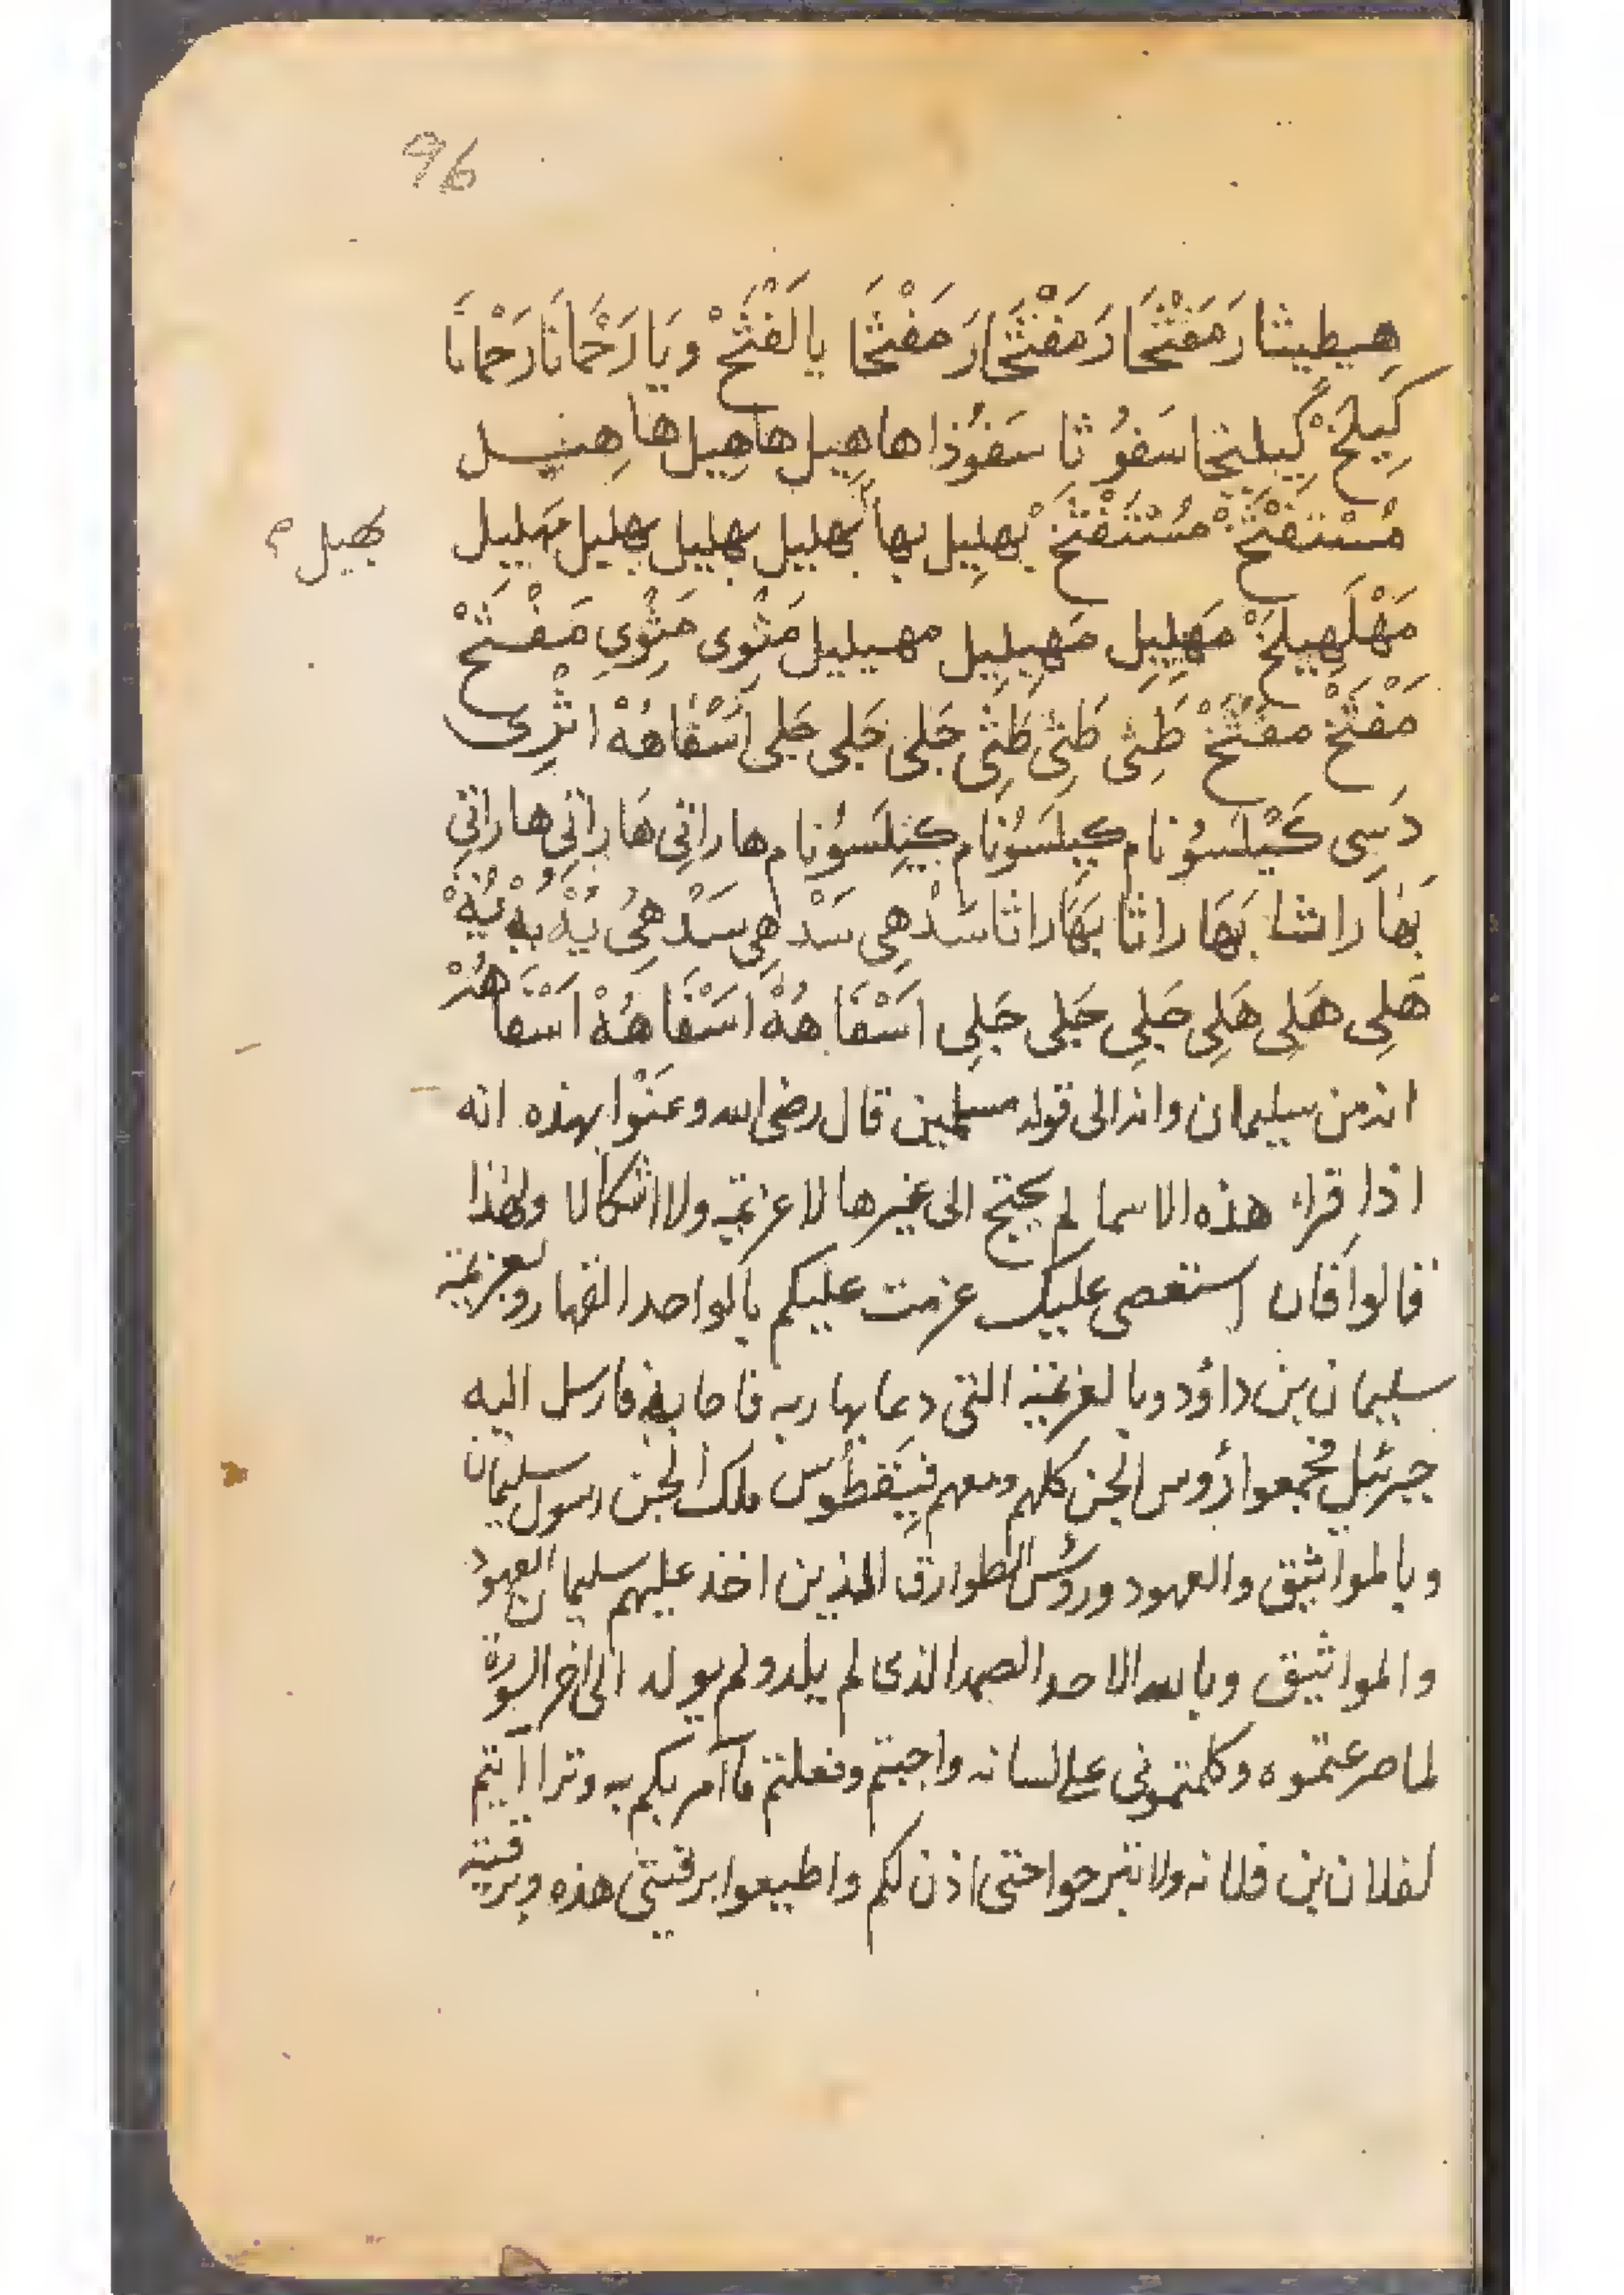 96
هِيطِيثا رَمَفْتَحَا رَمَفْتَحَا رَمَفْتَحَا يالَفْتَحْ وَيَا رَحْمَاثَا رَحْمانَا
كِيلَخْ كِيلِيخا سَفوُثا سَفوُذا هاهِيل هاهِيل هاهِيل
مُسْتَفْتَحْ مُسْتَفْتَحْ بهلِيل بها بهليل بهليل بهليل مهليل
بهيل م
مَهْلَهِيلَخْ مَهِيل مَهِيلِيل مهيليل مَثْوِى مَثْوِى مَفْتَحْ
مَفْتَحْ مَفْتَحْ طَثِى طَثِى طَثِى جَلى جَلى جَلى اَسْقَاهُهْ اثْرِى
دَسِى كَيْلَسوُنام كيلَسوُنَام كَيِلَسوُنام هاراثِى هَاراثِى هاراثِى
بَهَاراثا بَهَاراثا بَهَاراثا سَدْهِى سَدْهِى سَدْهِى يُهْ يُهْ يُهْ
هَلِى هَلِى هَلِى جَلِى جَلِى جَلِى اَسْقَاهُهْ اَسْقَاهُهْ اَسْقَاهُهْ
انه من سليمان وانه الى قوله مسلمين قال رضى الله وعَنَوْا بهذه انه
اذا قراء هذه الاسما لم يحتج الى غيرها لا عزيمة ولا اشكالا ولهذا
قالوا فان استعصى عليك عزمت عليكم بالواحد القهار وبعزيمة
سليمان بن داؤد وبالعزيمة التى دعا بها ربه فاجابه فارسل اليه
جبرئيل فجمعوا رؤوس الجن كلهم ومعهم فيقطوس ملك الجن رسول سليمان
وبالمواثيق والعهود ورؤس الطوارق الذين اخذ عليهم سليمان العهود
والمواثيق وبالله الاحد الصمد الذى لم يلد ولم يولد الى اخر السورة
لما صرعتموه وكلمتمونى على لسانه واجبتم وفعلتم ما آمركم به وترا أيتم
لفلان بن فلانه ولا تبرحوا حتى اذن لكم واطيعوا برقيتى هذه وبرقية